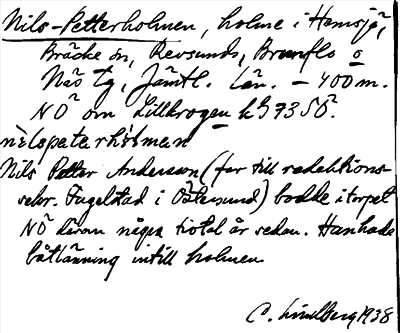 Nils-Petterholmen, holme i Hemsjö,
Bräcke sn, Revsunds, Brunflo o
Näs tg, Jämtl. län. – 400 m.
NÖ om Lillkrogen k 973 58.
nìlspeterhòlmen
Nils Petter Andersson (far till redaktions-
sekr. Fugelstad i Östersund) bodde i torpet
NÖ därom några tiotal år sedan. Han hade
båtlänning intill holmen
C. Lindberg 1938